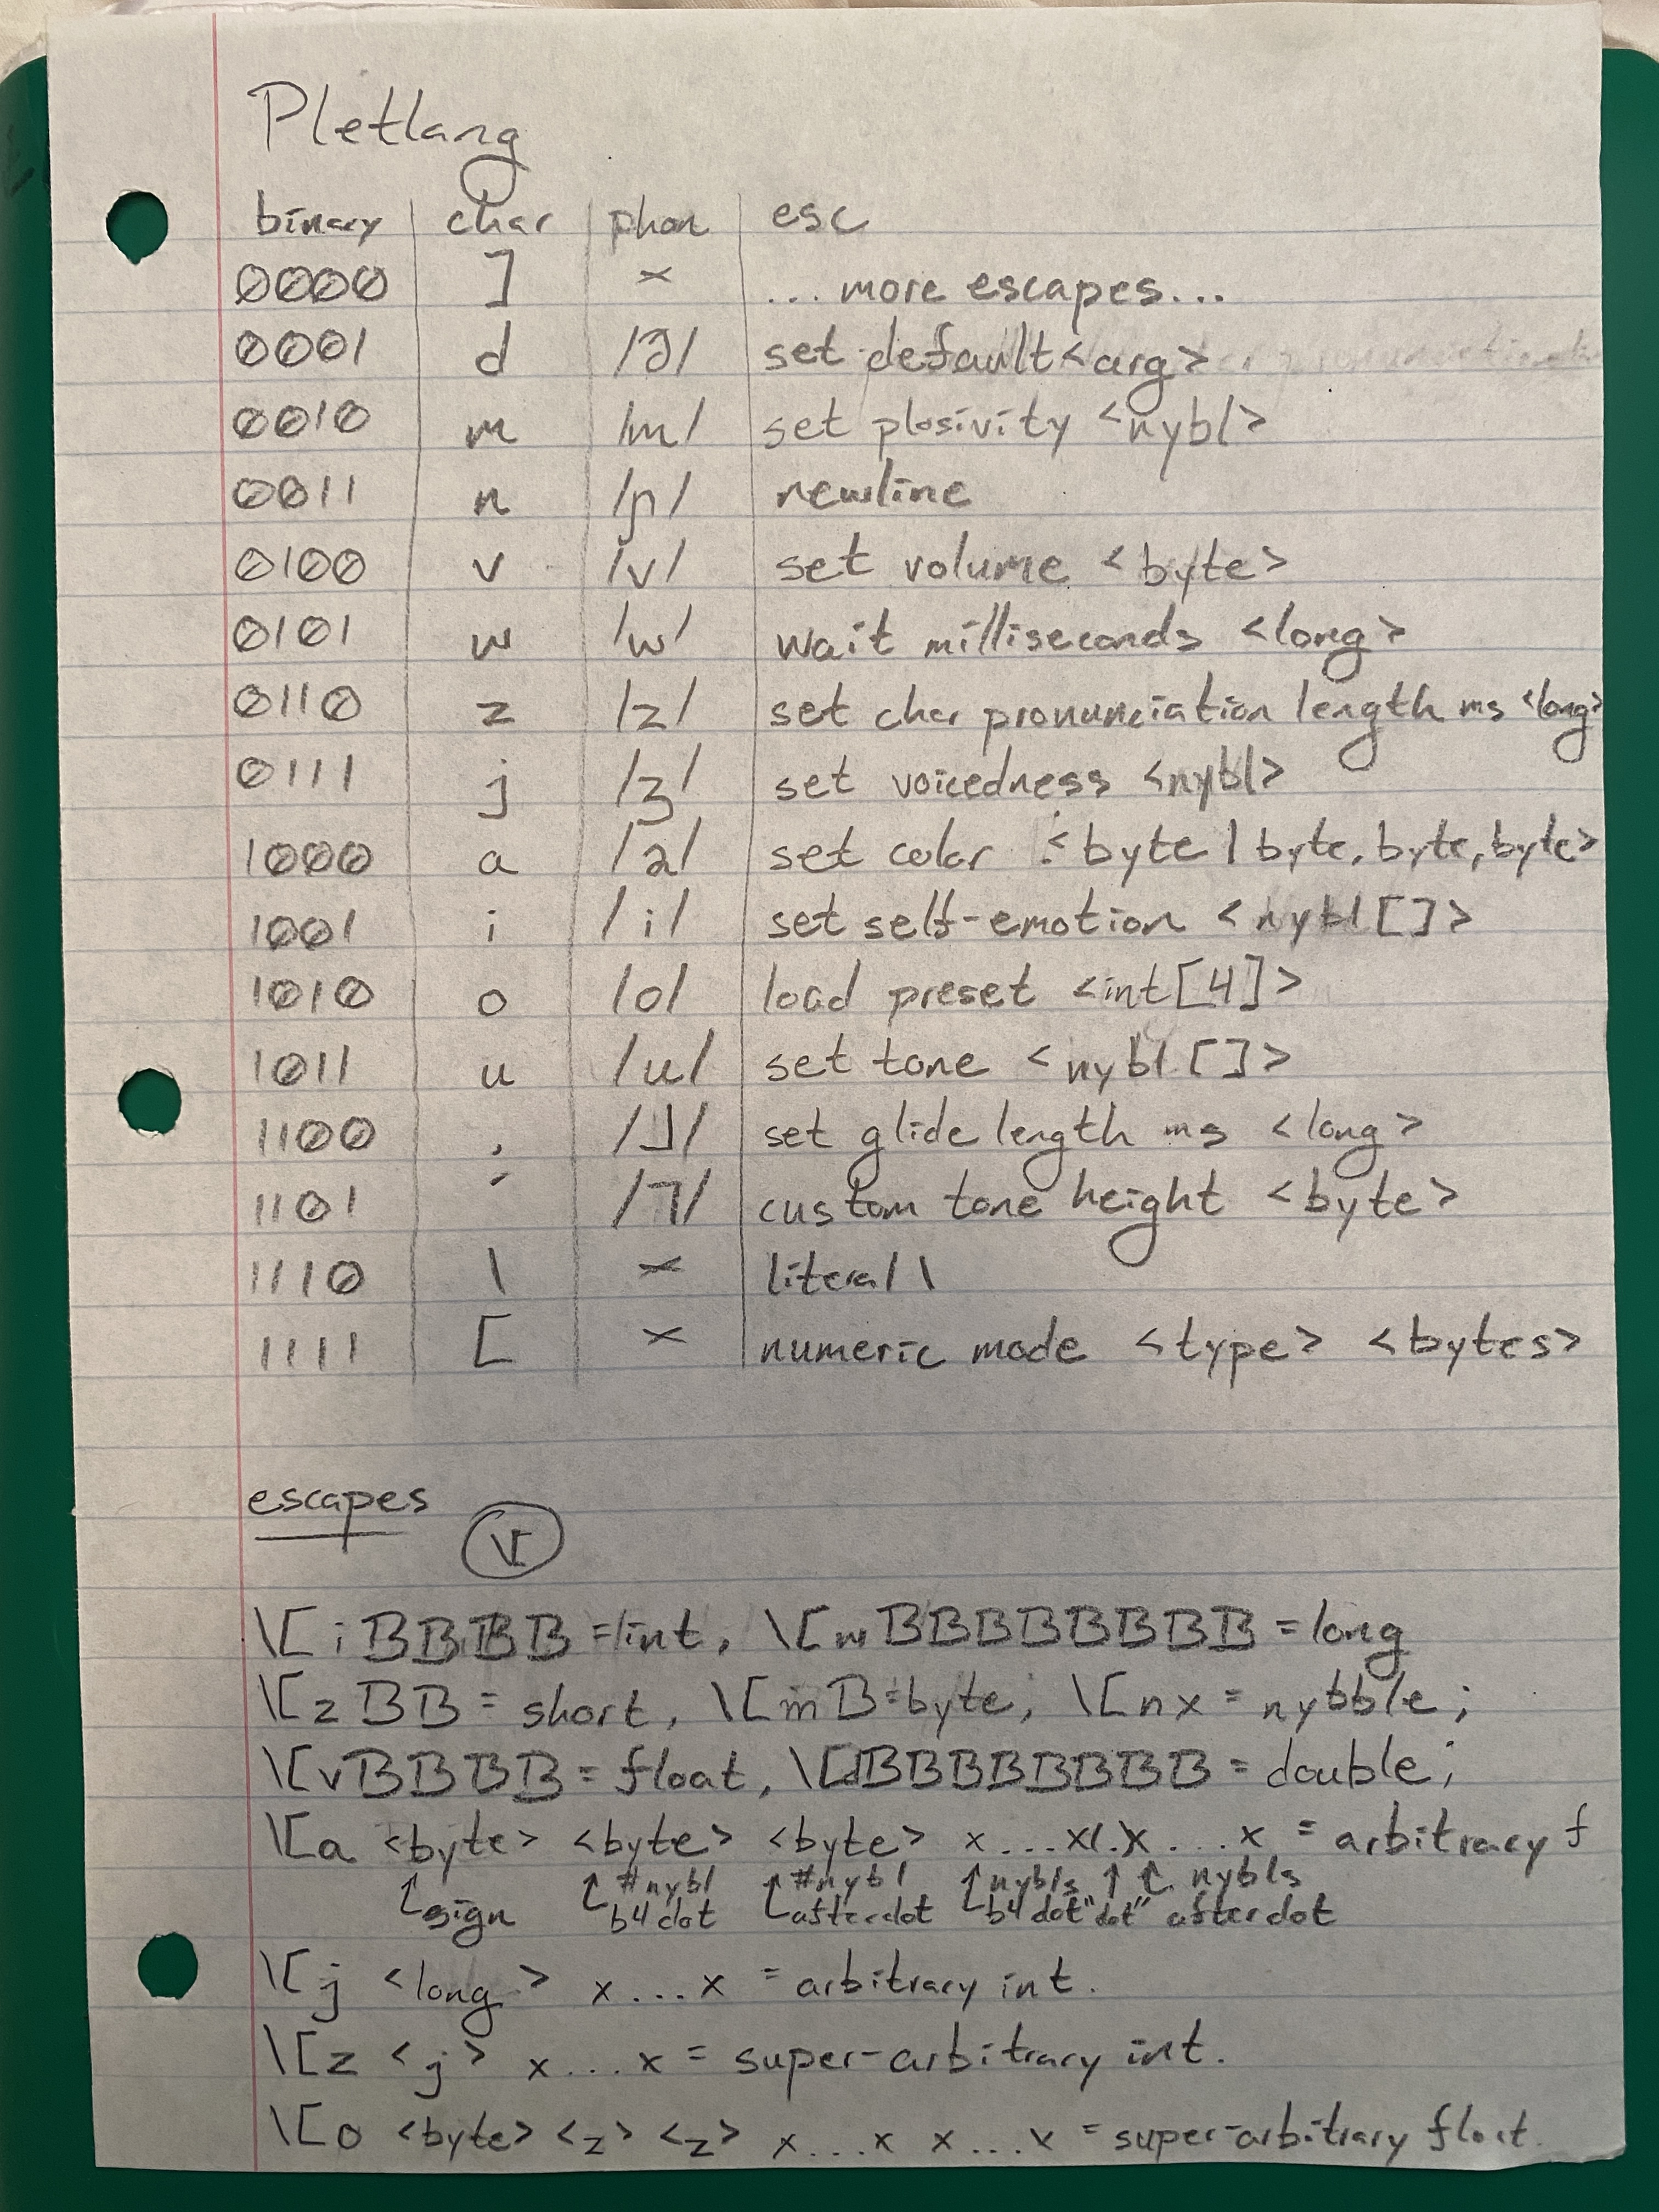 Pletlang
binary | char | phon | esc
0000 ] × ...more escapes...
0001 d /ꝺ/ set default <arg>
0010 m /m/ set plosivity <nybl>
0011 n /ɲ/ newline
0100 v /v/ set volume <byte>
0101 w /w/ wait milliseconds <long>
0110 z /z/ set char pronunciation length ms <long>
0111 j /ʒ/ set voicedness <nybl>
1000 a /a/ set color <byte | byte, byte, byte>
1001 i /i/ set self-emotion <nybl[]>
1010 o /o/ load preset <int[4]>
1011 u /u/ set tone <nybl[]>
1100 , /˩/ set glide length ms <long>
1101 ´ /˥/ custom tone height <byte>
1110 \ × literal \
1111 [ × numeric mode <type> <bytes>
escapes
\[
\[iBBBB = int, \[wBBBBBBBB = long
\[zBB = short, \[mB = byte; \[nx = nybble;
\[vBBBB = float, \[dBBBBBBBB = double;
\[a <byte> <byte> <byte> x...x(.)x...x = arbitrary f
sign #nybl b4dot #nybl afterdot nybls b4dot "dot" nybls afterdot
\[j <long> x...x = arbitrary int.
\[z <j> x...x = super-arbitrary int.
\[o <byte> <z> <z> x...x x...x = super-arbitrary float.